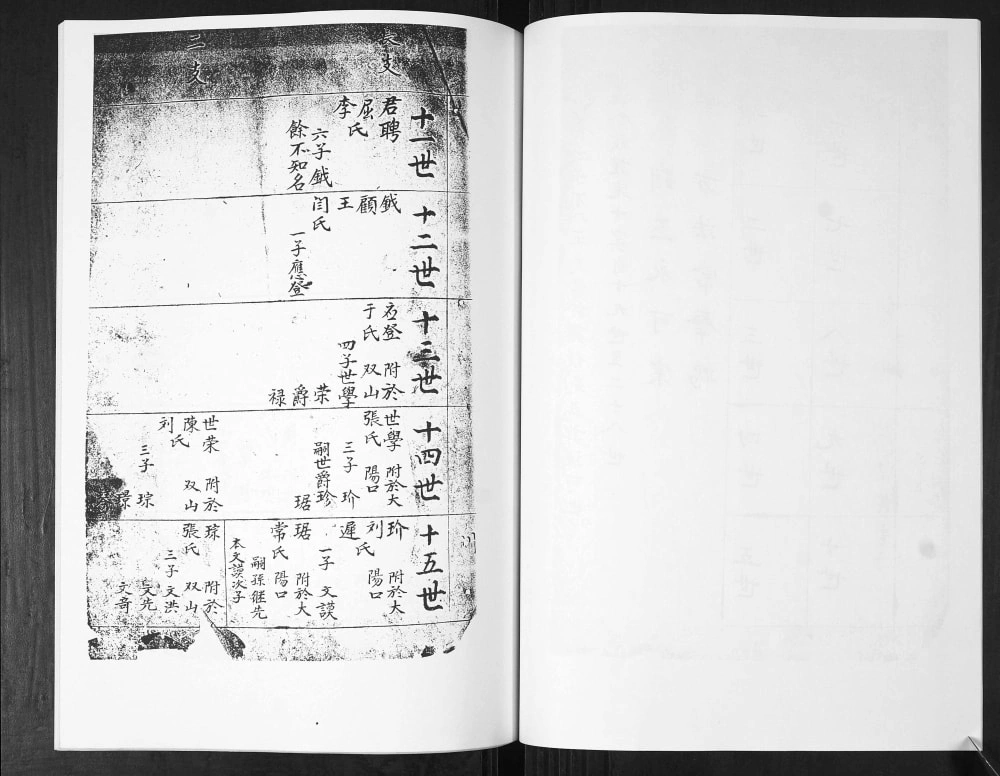 長支
二支
十一世
君聘
屈氏
李
六子鉞
餘不知名
十二世
鉞
顧
王
闫氏
一子應登
十三世
應登 附於
于氏 双山
四子世學
荣
爵
禄
十四世
世學 附於大
張氏 陽口
三子 玠
嗣世爵珍
琚
世荣 附於
陳 双山
刘氏
三子 琮
璟
十五世
玠 附於大
刘氏 陽口
遲
一子 文謨
琚 附於大
常氏 陽口
嗣孫継先
本文謨次子
琮 附於
張氏 双山
三子文洪
文先
文奇